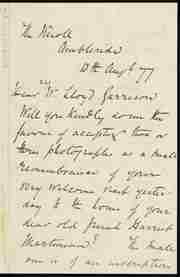 The Knoll
Ambleside
11th Aug't 77
Dear Mr Lloyd Garrison
Will you kindly do me the
favour of accepting two or
three photographs as a small
remembrance of your
very welcome visit yester-
day to the home of your
dear old friend Harriet
Martineau? The small
one is of an inscription